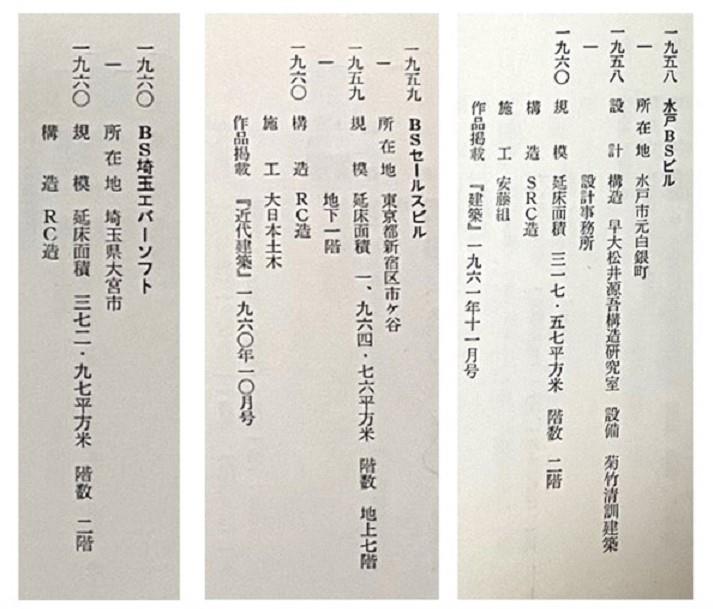 一九五八 水戸BSビル
一 所在地 水戸市元白銀町
一九五八 設計 構造 早大松井源吾構造研究室 設備 菊竹清訓建築
一 設計事務所
一九六〇 規模 延床面積 三一七・五七平方米 階数 二階
構造 SRC造
施工 安藤組
作品掲載 『建築』一九六一年十一月号
一九五九 BSセールスビル
一 所在地 東京都新宿区市ケ谷
一九五九 規模 延床面積 一、九六四・七六平方米 階数 地上七階
一 地下一階
一九六〇 構造 RC造
施工 大日本土木
作品掲載 『近代建築』一九六〇年一〇月号
一九六〇 BS埼玉エバーソフト
一 所在地 埼玉県大宮市
一九六〇 規模 延床面積 三七二・九七平方米 階数 二階
構造 RC造